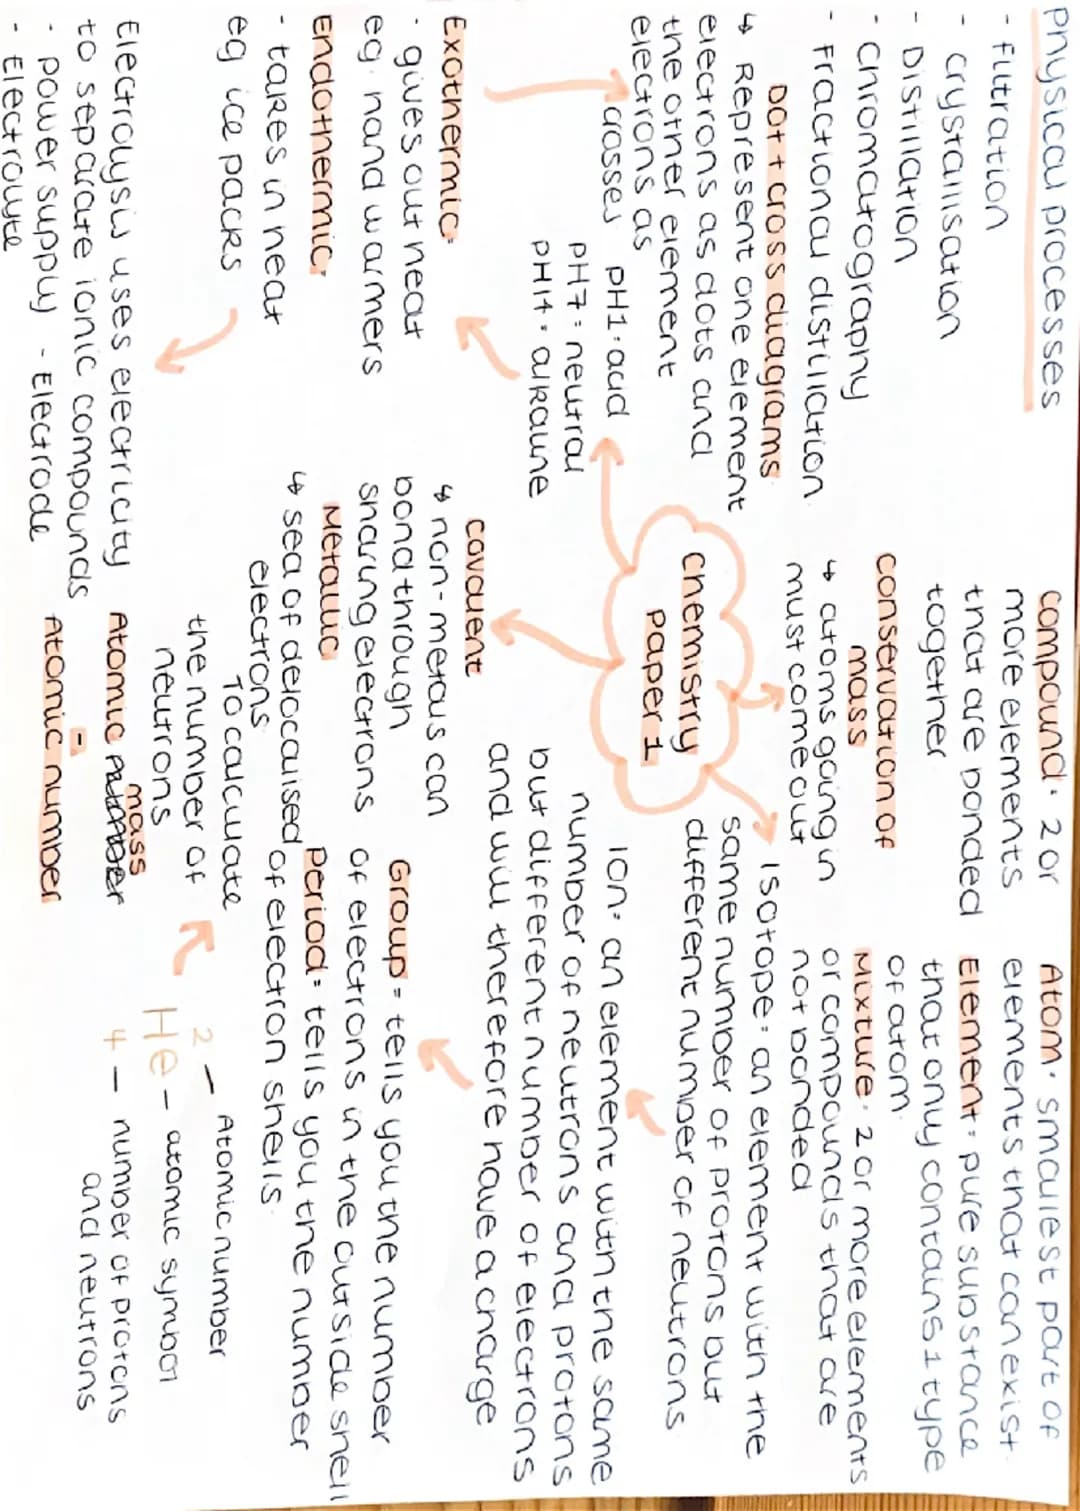 Physical processes
- filtration
- crystallisation
- Distillation
- Chromatography
- Fractional distillation
Dot + cross diagrams
↳ Represent one element
electrons as dots and
the other element
electrons as
crosses
pH1 = acid
pH7 = neutral
pH14 = alkaline
Exothermic =
· gives out heat
eg. hand warmers
Endothermic:
· takes in heat
eg ice packs
Electrolysis uses electricity
to separate ionic compounds
· power supply - Electrode
- Electrolyte
compound · 2 or
more elements
that are bonded
together
conservation of
mass
↳ atoms going in
must come out
Chemistry
Paper 1
covalent
↳ non-metals can
bond through
sharing electrons
Metallic
↳ sea of delocalised
electrons
To calculate
the number of
neutrons
Atomic mass
-
Atomic number
Atom · smallest part of
elements that can exist
Element = pure substance
that only contains 1 type
of atom.
Mixture · 2 or more elements
or compounds that are
not bonded
Isotope = an element with the
same number of protons but
different number of neutrons
Ion = an element with the same
number of neutrons and protons
but different number of electrons
and will therefore have a charge
Group = tells you the number
of electrons in the outside shell
Period = tells you the number
of electron shells.
2 - Atomic number
He - atomic symbol
4 - number of protons
and neutrons